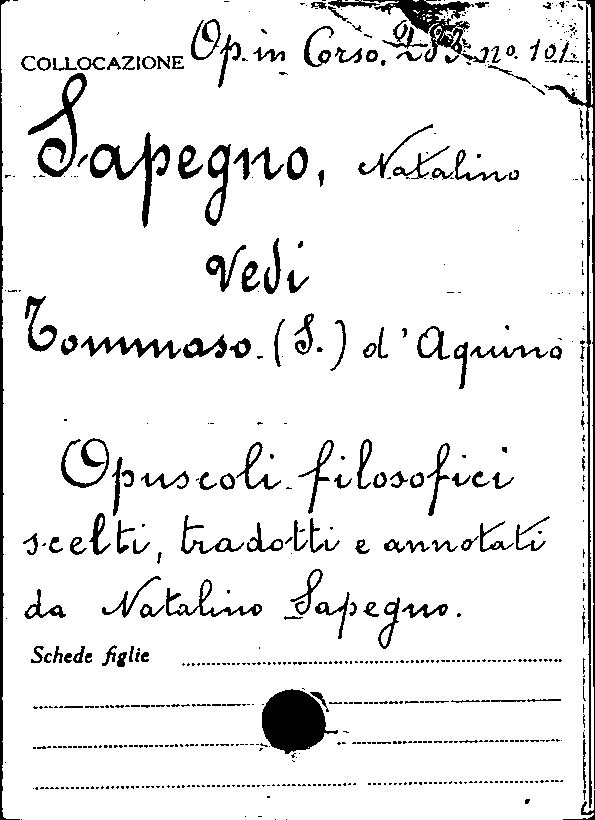 COLLOCAZIONE Op. in Corso. 283. nº. 101.
Sapegno, Natalino
Vedi
Tommaso. (S.) d'Aquino
Opuscoli filosofici
scelti, tradotti e annotati
da Natalino Sapegno.
Schede figlie